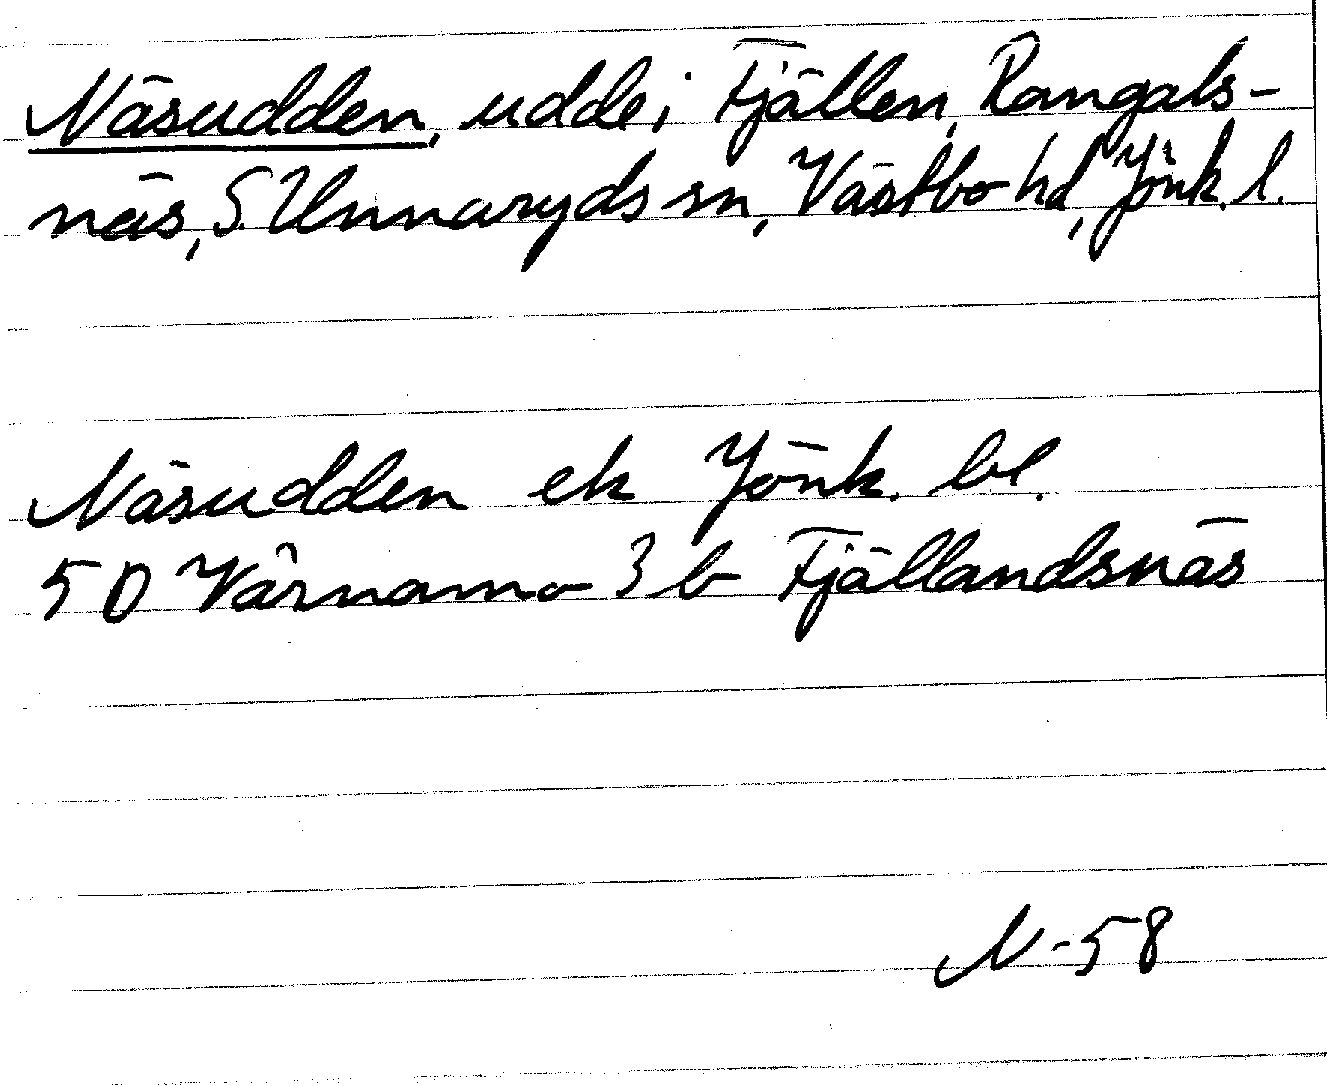 Näsudden, udde i Fjällen, Rangals-
näs, S. Unnaryds sn, Västbo hd, Jönk. l.
Näsudden ek Jönk. bl.
5D Värnamo 3b Fjällandsnäs
N-58